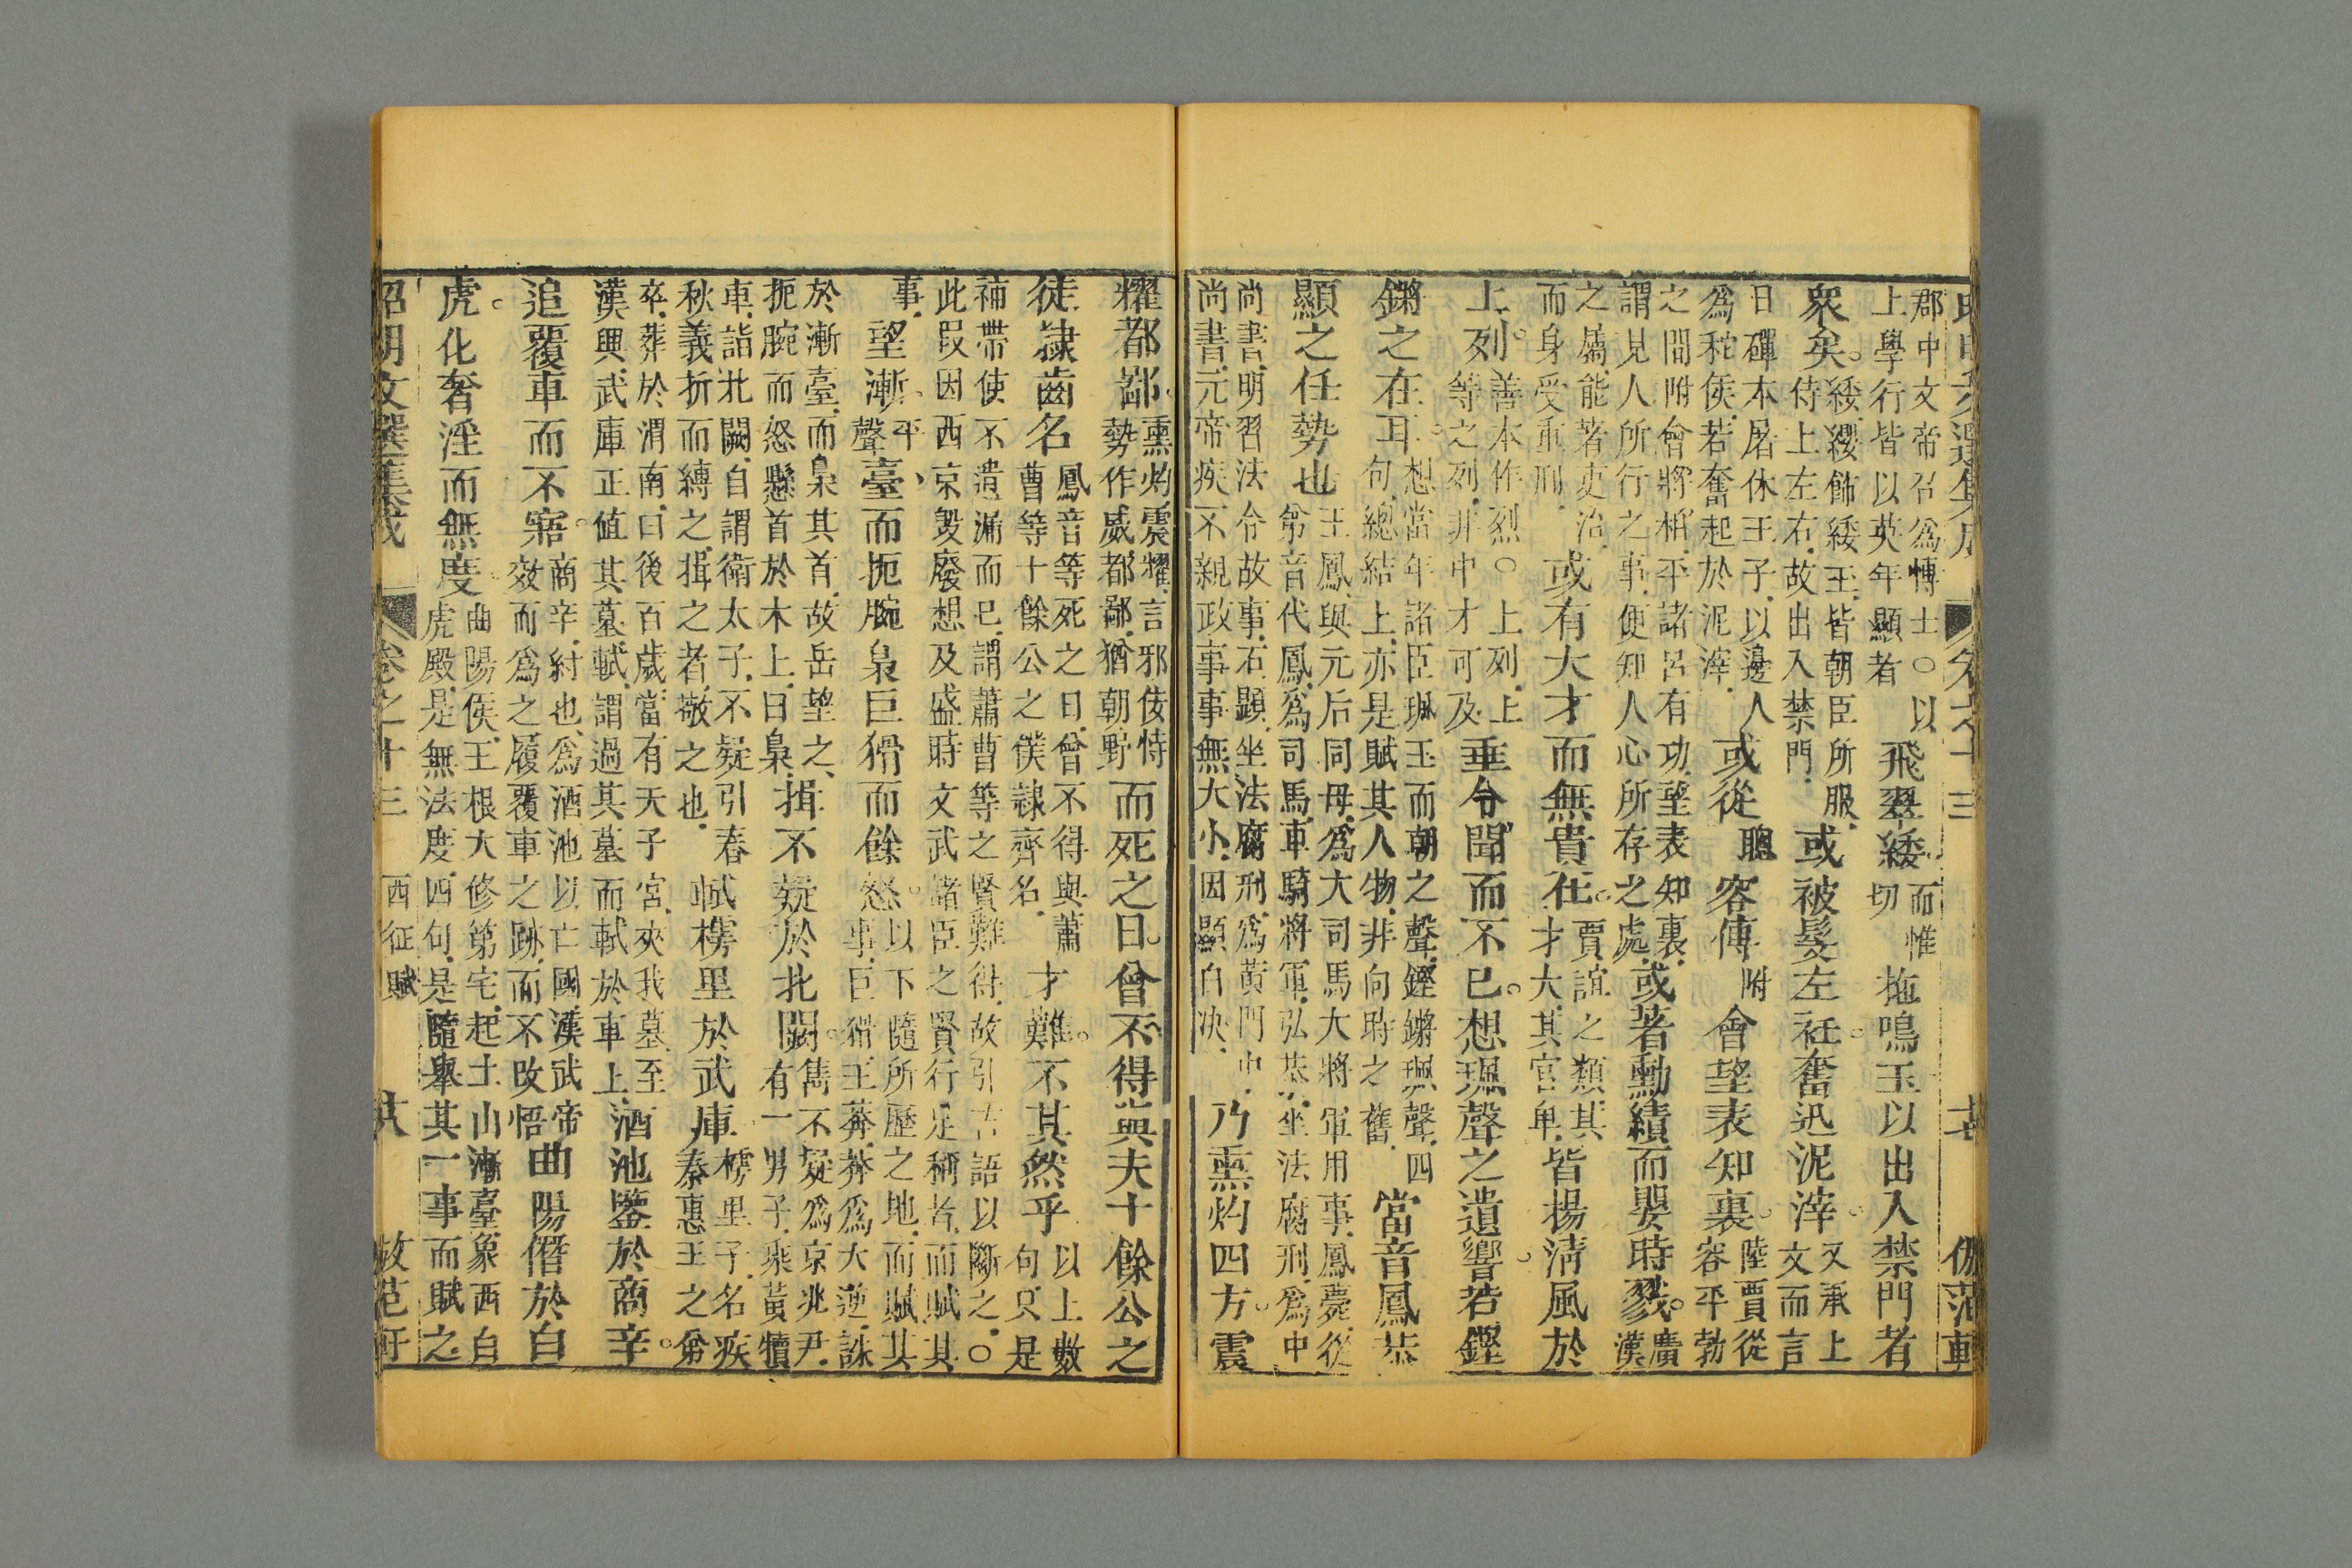 昭明文選集成 卷之十三 十七 仿范軒
郡中文帝召爲博士○以
上學行皆以英年顯者
飛翠緌
而惟
切
拖鳴玉以出入禁門者
衆矣。
緌纓飾緌玉皆朝臣所服
侍上左右故出入禁門
或被髮左衽。奮迅泥滓。
又承上
文而言
日磾本屠休王子以邊人
爲秺侯若奮起於泥滓
或從聰容傅附會望表知裏。
陸賈從
容平勃
之間附會將相平諸呂有功望表知裏
謂見人所行之事便知人心所存之處
或著勳績而嬰時戮。
廣
漢
之屬能著吏治
而身受重刑
或有大才而無貴仕。
賈誼之類其
才大其官卑
皆揚清風於
上列。
善本作烈○上列上
等之列非中才可及
垂令聞而不已。想珮聲之遺響若鏗
鏘之在耳。
想當年諸臣珮玉而朝之聲鏗鏘珮聲四
句總結上亦是賦其人物非向時之舊
當音鳳恭
顯之任勢也
王鳳與元后同母爲大司馬大將軍用事鳳薨從
弟音代鳳爲司馬車騎將軍弘恭坐法腐刑爲中
尚書明習法令故事石顯坐法腐刑爲黃門中
尚書元帝疾不親政事事無大小因顯白決
乃熏灼四方。震
耀都鄙。
熏灼震耀言邪佞恃
勢作威都鄙猶朝野
而死之日。曾不得與夫十餘公之
徒隷齒名
鳳音等死之日曾不得與蕭
曹等十餘公之僕隷齊名
才難。不其然乎
以上數
句只是
補帶使不遺漏而已謂蕭曹等之賢難得故引古語以斷之○
此叚因西京毀廢想及盛時文武諸臣之賢行足稱者而賦其
事
望漸平聲臺而扼腕梟巨猾而餘怒。
以下隨所歷之地而賦其
事巨猾王莽莽爲大逆誅
於漸臺而梟其首故岳望之
扼腕而怒懸首於木上曰梟
揖不疑於北闕。
雋不疑爲京兆尹
有一男子乘黃犢
車詣北闕自謂衛太子不疑引春
秋義折而縛之揖之者敬之也
軾樗里於武庫
樗里子名疾
秦惠王之弟
卒葬於渭南曰後百歲當有天子宮夾我墓至
漢興武庫正値其墓軾謂過其墓而軾於車上
酒池鑒於商辛。
追覆車而不寤。
商辛紂也爲酒池以亡國漢武帝
效而爲之履覆車之跡而不改悟
曲陽僭於白
虎。化奢淫而無度。
曲陽侯王根大修第宅起土山漸臺象西白
虎殿是無法度四句是隨舉其一事而賦之
昭明文選集成 卷之十三 西征賦 十八 仿范軒